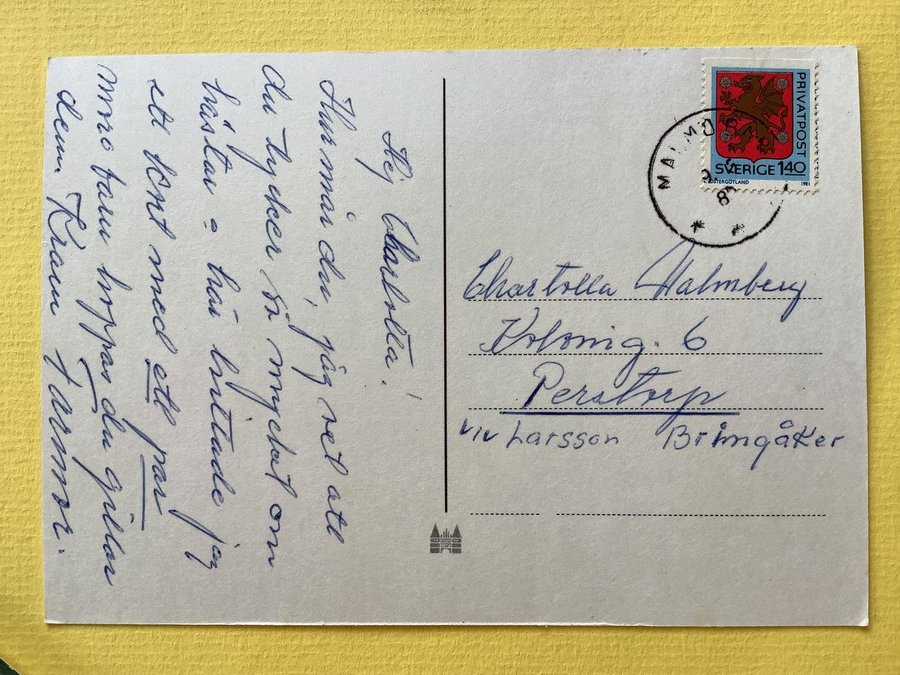 Hej Charlotta!
Hur mår du, jag vet att
du tycker så mycket om
hästar = här hittade jag
ett kort med ett par
hoppas du gillar
dem. Kram farmor.
PRIVATPOST
SVERIGE 140
ÖSTERGÖTLAND 1981
MALMÖ
Charlotta Malmberg
Kolonig. 6
Perstorp
Larsson Brîngåker